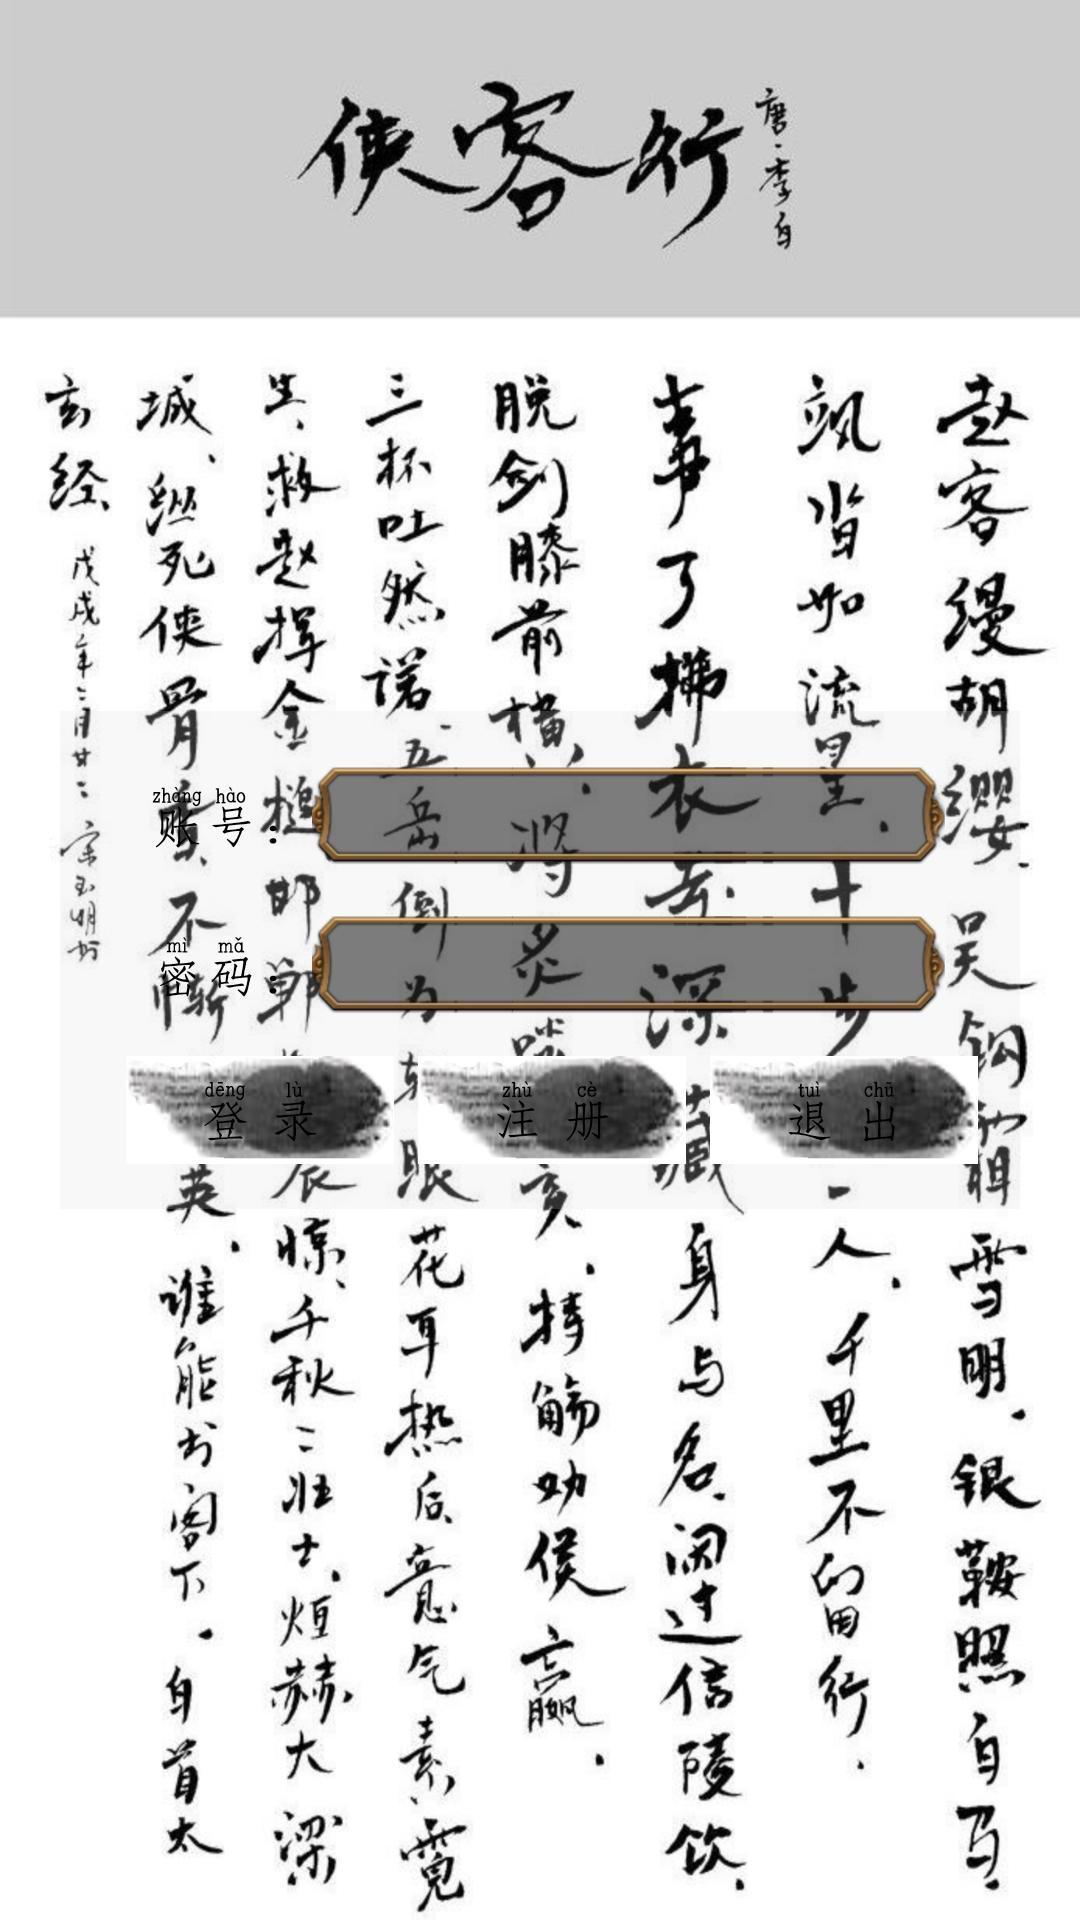 侠客行
唐·李白
赵客缦胡缨.吴钩霜雪明.银鞍照白马.
飒沓如流星.十步一人.千里不留行.
事了拂衣去.深藏身与名.闲过信陵饮.
脱剑膝前横.将炙啖亥.持觞劝侯嬴.
三杯吐然诺.五岳倒为轻眼花耳热后意气素霓
生、救赵挥金槌邯郸辰惊、千秋二壮士.烜赫大梁
城.纵死侠骨香.不惭英.谁能书阁下.白首太
玄经.
戊戌年二月廿二
zhàng hào
账号:
mì mǎ
密码:
dēng lù
登录
zhù cè
注册
tuì chū
退出